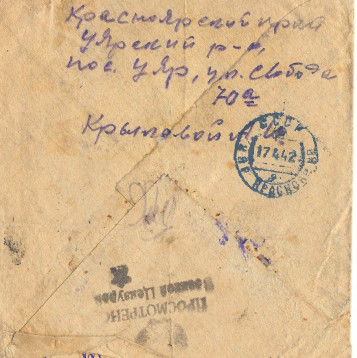 Красноярский край
Уярский р-н,
пос. Уяр, ул. Свобода
70а
Крыловой
СССР
17 4 42
КРАСНОЯРСК
ПРОСМОТРЕНО
Военной Цензурой